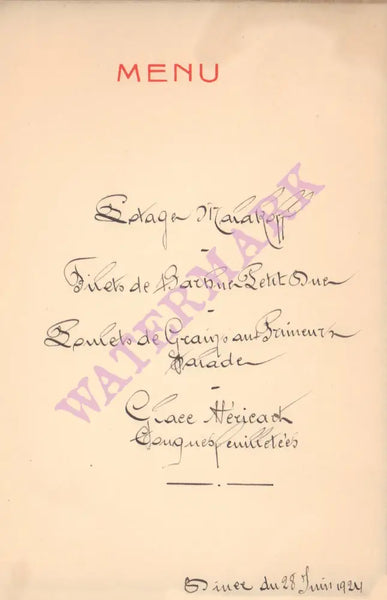 MENU
Potage Malakoff
-
Filets de Barbue Petit Duc
-
Poulets de Grains aux Primeurs
Salade
-
Glace Héricart
Langues feuilletées
Diner du 28 Juin 1924
WATERMARK